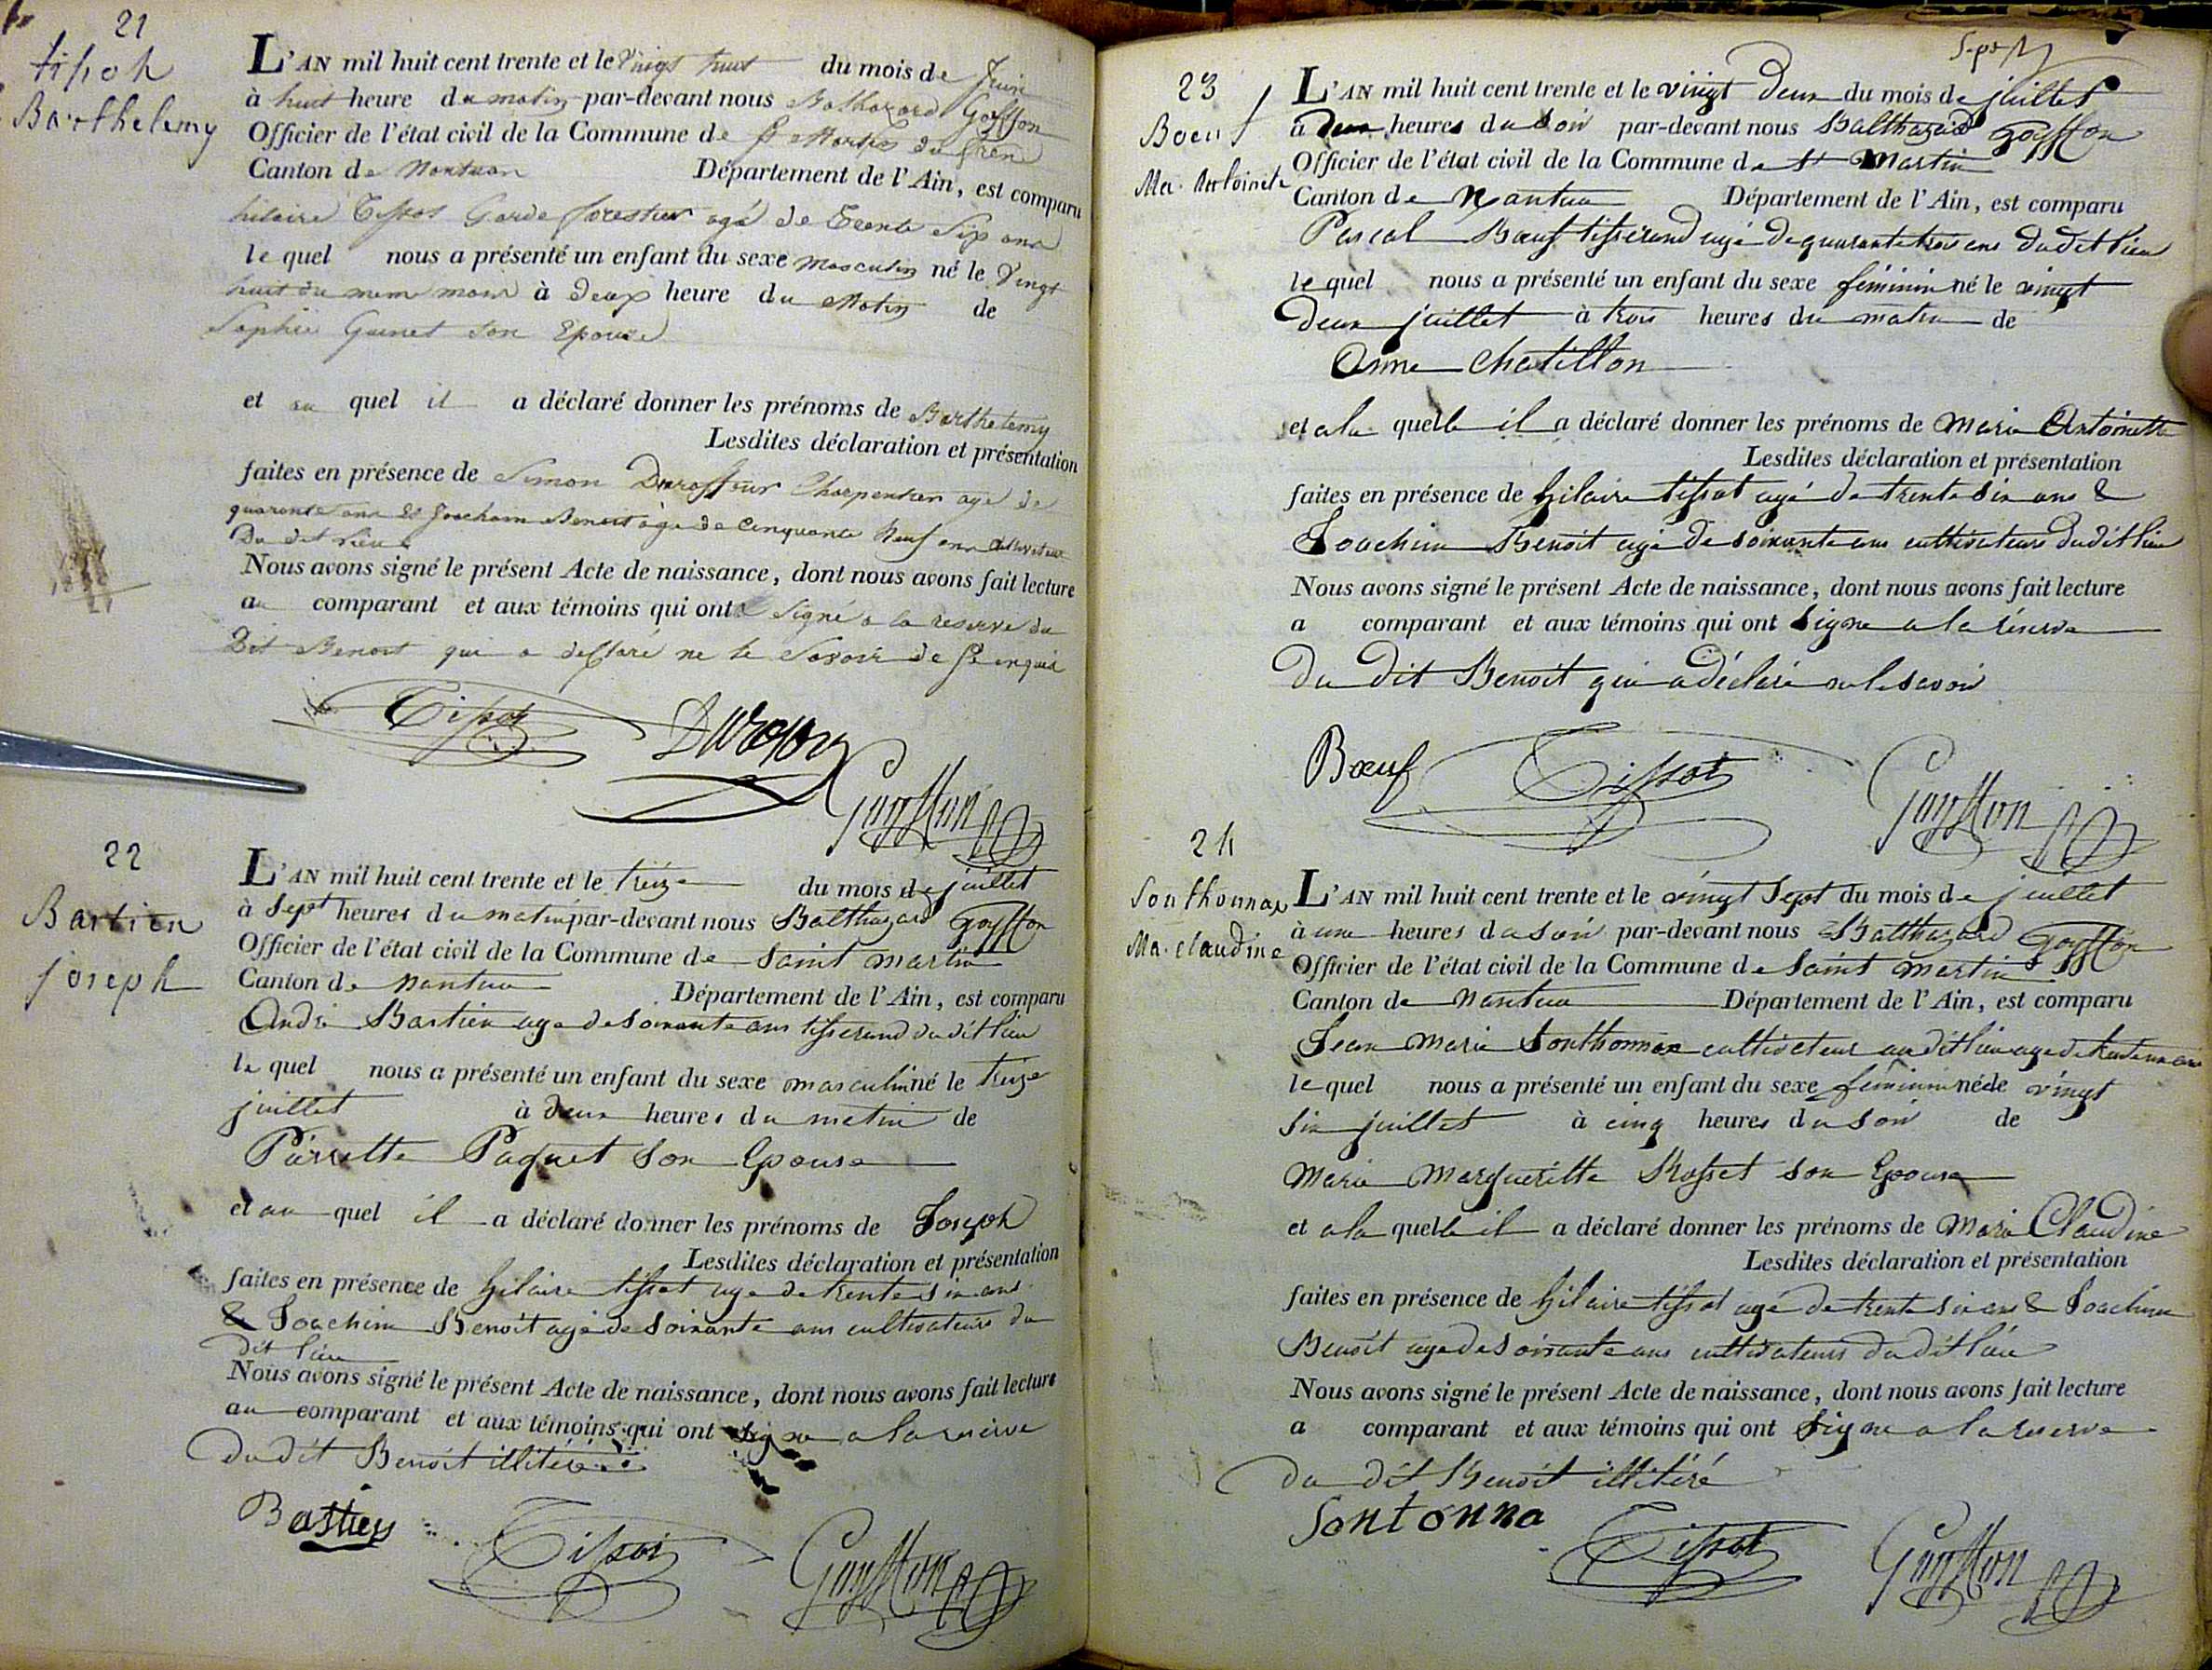 21
tissot
Barthelemy
L'AN mil huit cent trente et le vingt huit du mois de Juin
à huit heure du matin par-devant nous Balthazard Goÿffon
Officier de l'état civil de la Commune de St Martin du frene
Canton de Nantua Département de l'Ain, est comparu
hilaire Tissot Garde forestier agé de Trente Six ans
le quel nous a présenté un enfant du sexe masculin né le Vingt
huit du meme mois à deux heure du Matin de
Sophie Guinet son Epouse
et au quel il a déclaré donner les prénoms de Barthelemy
Lesdites déclaration et présentation
faites en présence de Simon Charpentier age de
quarante ans Et Joachim Benoit agé de Cinquante Neuf ans Cultivateur
Du dit Lieu
Nous avons signé le présent Acte de naissance, dont nous avons fait lecture
au comparant et aux témoins qui ont signé a la reserve du
Dit Benoit qui a declaré ne le Savoir de Ce enquis
Tissot
Goÿffon
22
Bastien
joseph
L'AN mil huit cent trente et le treize du mois de juillet
à Sept heures du matin par-devant nous Balthazard Goÿffon
Officier de l'état civil de la Commune de Saint Martin
Canton de Nantua Département de l'Ain, est comparu
André Bastien age de soixante ans tisserand du dit lieu
le quel nous a présenté un enfant du sexe masculin né le treize
juillet à deux heures du matin de
Pierrette Paquet son Epouse
et au quel il a déclaré donner les prénoms de Joseph
Lesdites déclaration et présentation
faites en présence de hilaire tissot age de trente six ans
& Joachim Benoit agé de soixante ans cultivateurs du
dit lieu
Nous avons signé le présent Acte de naissance, dont nous avons fait lecture
au comparant et aux témoins qui ont signe a la reserve
du dit Benoit illitéré
Bastien
Tissot
Goÿffon
23
Boeuf
Ma. Antoinette
L'AN mil huit cent trente et le vingt Deux du mois de juillet
a Deux heures du Soir par-devant nous Balthazard Goÿffon
Officier de l'état civil de la Commune de St Martin
Canton de Nantua Département de l'Ain, est comparu
Pascal Bœuf tisserand agé de quarante trois ans du dit lieu
le quel nous a présenté un enfant du sexe féminin né le vingt
Deux juillet à trois heures du matin de
Anne Chatillon
et a la quelle il a déclaré donner les prénoms de Marie Antoinette
Lesdites déclaration et présentation
faites en présence de hilaire tissot agé de trente six ans &
Joachim Benoit agé de soixante ans cultivateurs du dit lieu
Nous avons signé le présent Acte de naissance, dont nous avons fait lecture
a comparant et aux témoins qui ont Signe a la réserve
Du dit Benoit qui a déclaré ne le savoir
Bœuf
Tissot
Goÿffon
24
Sonthonnax
Ma. claudine
L'AN mil huit cent trente et le vingt Sept du mois de juillet
à une heures du soir par-devant nous Balthazard Goÿffon
Officier de l'état civil de la Commune de Saint Martin
Canton de Nantua Département de l'Ain, est comparu
Jean Marie Sonthonnax cultivateur au dit lieu age de
le quel nous a présenté un enfant du sexe féminin né de vingt
Six juillet à cinq heures du soir de
Marie Margueritte Rosset son Epouse
et a la quelle il a déclaré donner les prénoms de Marie Claudine
Lesdites déclaration et présentation
faites en présence de hilaire tissot agé de trente six ans & Joachim
Benoit age de soixante ans cultivateurs du dit lieu
Nous avons signé le présent Acte de naissance, dont nous avons fait lecture
a comparant et aux témoins qui ont Signe a la reserve
du dit Benoit illitéré
Sontonna
Tissot
Goÿffon